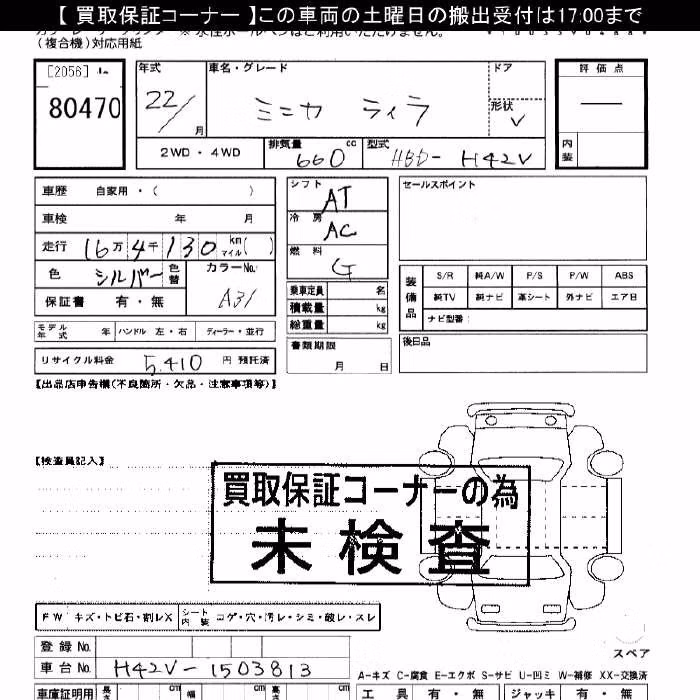 【 買取保証コーナー 】この車両の土曜日の搬出受付は17:00まで
(複合機)対応用紙
[2056]
80470
年式
22/
月
車名・グレード
ミニカ ライラ
ドア
形状
V
評価点
内装
2WD・4WD
排気量
660
cc
型式
HBD-H42V
車歴 自家用・( )
車検 年 月
走行 16万4千130 km マイル( )
色 シルバー 色替
カラーNo.
A31
保証書 有・無
シフト
AT
冷房
AC
燃料
G
乗車定員 名
積載量 kg
総重量 kg
書類期限
月 日
セールスポイント
装備品
S/R 純A/W P/S P/W ABS
純TV 純ナビ 革シート 外ナビ エア日
ナビ型番:
後日品
モデル年式 年 ハンドル 左・右 ディーラー・並行
リサイクル料金 5,410 円 預託済
【出品店申告欄(不良箇所・欠品・注意事項等)】
【検査員記入】
買取保証コーナーの為
未検査
FW キズ・トビ石・割レX シート内装 コゲ・穴・汚レ・シミ・破レ・スレ
登録No.
車台No. H42V-1503813
スペア
A-キズ C-腐食 E-エクボ S-サビ U-凹ミ W-補修 XX-交換済
車庫証明用 長さ cm 幅 cm 高さ cm
工具 有・無 ジャッキ 有・無